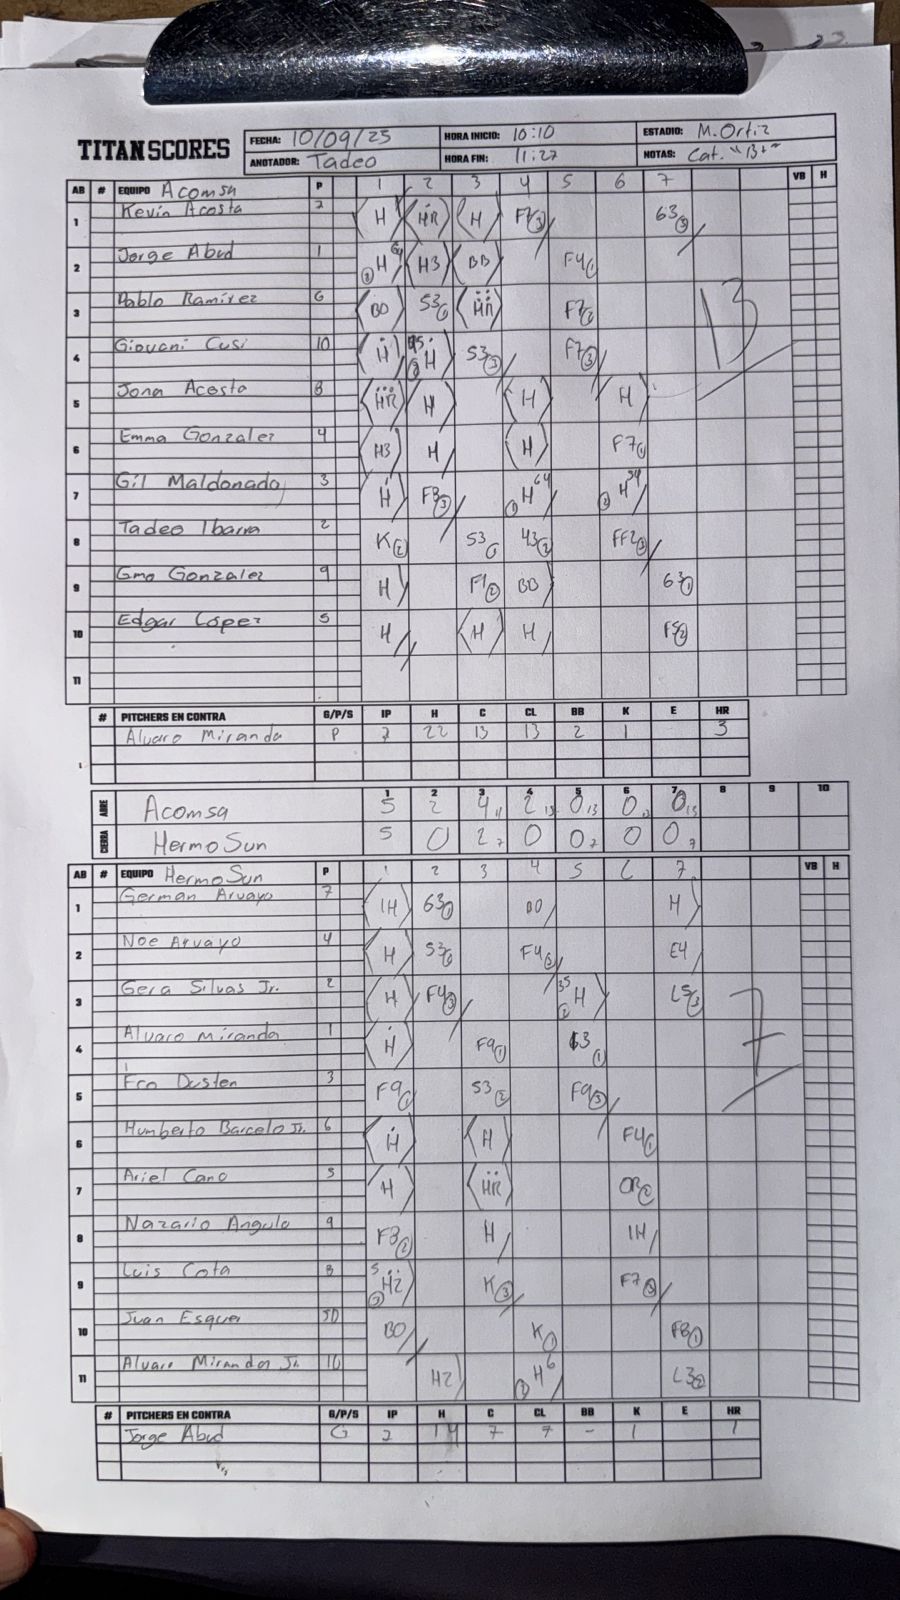 TITAN SCORES
FECHA: 10/09/25 HORA INICIO: 10:10 ESTADIO: M. Ortiz
ANOTADOR: Tadeo HORA FIN: 11:27 NOTAS: Cat. "B+"
AB # EQUIPO Acomsa P 1 2 3 4 5 6 7 VB H
1 Kevin Acosta 7 H HR H F7③ 63③
2 Jorge Abud 1 H H3 BB F4①
3 Pablo Ramirez 6 BO 53① HR F7
4 Giovani Cusi 10 H H 53③ F7③
5 Jona Acosta 8 HR H H H
6 Emma Gonzalez 4 H3 H H F7①
7 Gil Maldonado 3 H F8③ ①H64 H54
8 Tadeo Ibarra 2 K② 53 43② FF2③
9 Gmo Gonzalez 9 H F1② BB 63①
10 Edgar López 5 H H H F5②
11
13
# PITCHERS EN CONTRA G/P/S IP H C CL BB K E HR
Alvaro Miranda P 7 22 13 13 2 1 3
1 2 3 4 5 6 7 8 9 10
ABRE Acomsa 5 2 4 11 2 13 0 13 0 0 13
CIERRA HermoSun 5 0 2 7 0 0 7 0 0 7
AB # EQUIPO HermoSun P 1 2 3 4 5 6 7 VB H
1 German Aruayo 7 1H 63① BO H
2 Noe Aruayo 4 H 53 F4③ E4
3 Gera Silvas Jr. 2 H F4③ 35 H L5③
4 Alvaro Miranda 1 H F9① 63①
5 Fco Dusten 3 F9① 53② F9③
6 Humberto Barcelo Jr. 6 H H F4①
7 Ariel Cano 5 H HR OR②
8 Nazario Angulo 9 F8② H 1H
9 Luis Cota 8 H2 K③ F7③
10 Juan Esquer BO K① F8①
11 Alvaro Miranda Jr. 10 H2 H6 L3②
7
# PITCHERS EN CONTRA G/P/S IP H C CL BB K E HR
Jorge Abud G 7 14 7 7 - 1 1